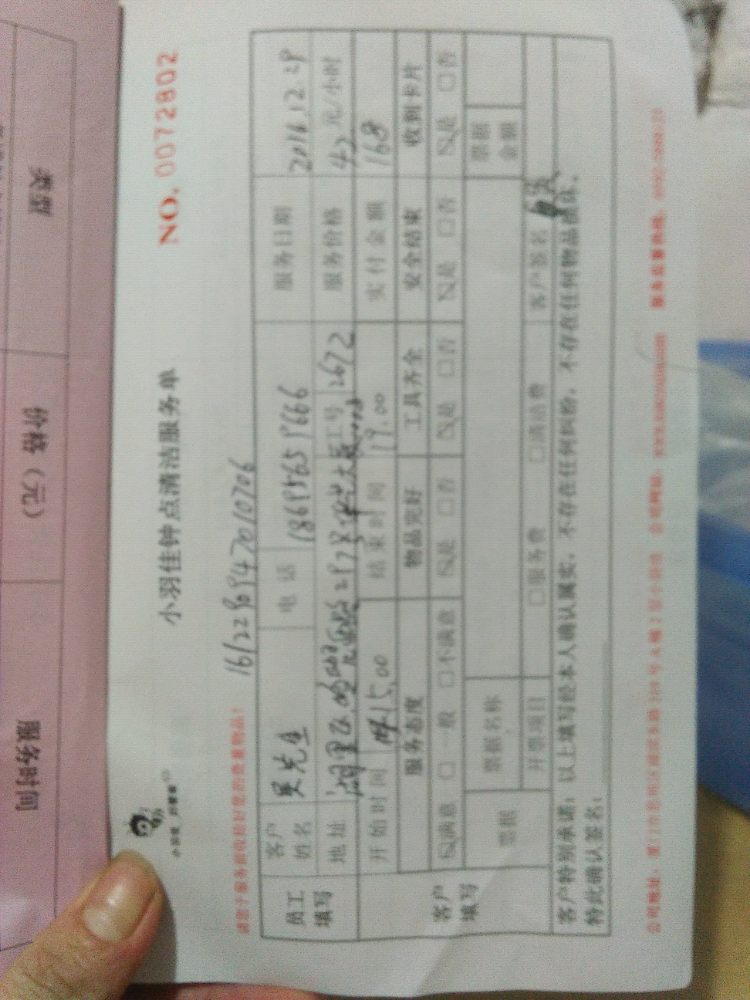 小羽佳钟点清洁服务单
NO. 0072802
请您于服务前收拾好您的贵重物品!
员工填写
客户姓名 吴先生 电话 18695659666 服务日期 2016.12.29
地址 湖里区 297号 工号 2672 服务价格 42元/小时
开始时间 15.00 结束时间 19.00 实付金额 168
客户填写
服务态度 物品完好 工具齐全 安全结束 收到卡片
☑满意 □一般 □不满意 ☑是 □否 ☑是 □否 ☑是 □否 ☑是 □否
票据 票据名称 票据金额
开票项目 □服务费 □清洁费 客户签名
客户特别承诺: 以上填写经本人确认属实, 不存在任何纠纷, 不存在任何物品损坏,
特此确认签名:
公司地址: 公司网站: 服务监督热线:
类型
价格(元)
服务时间